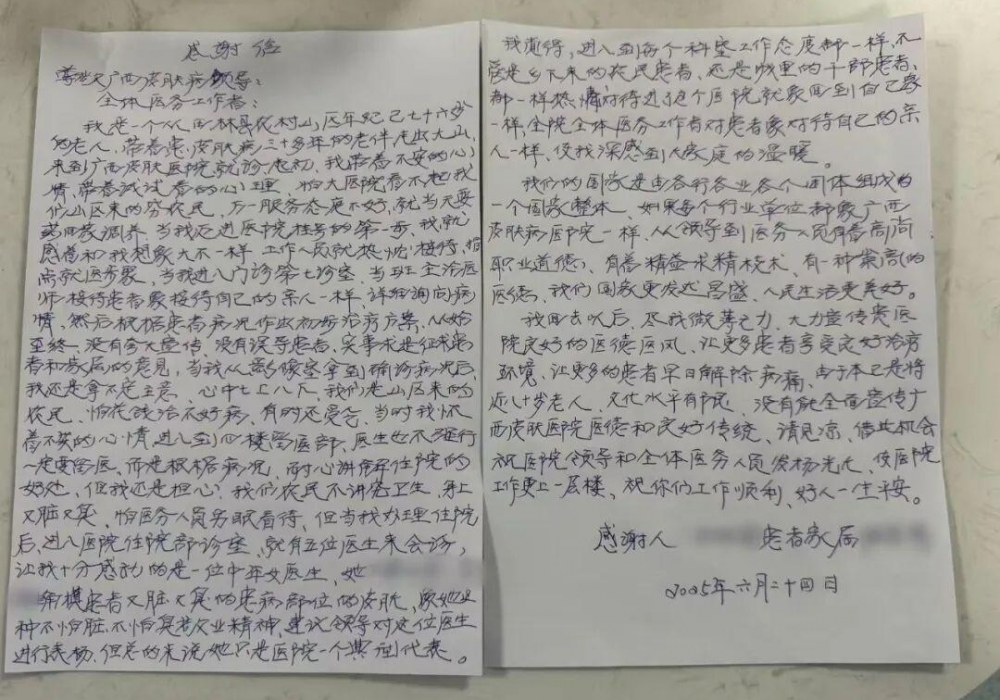 感谢信
尊敬广西皮肤病领导:
全体医务工作者:
我是一个从田林县农村山区年纪已七十六岁
的老人,带着患皮肤病三十多年的老伴走出大山,
来到广西皮肤医院就诊,起初,我带着不安的心
情,带着试试看的心理,怕大医院看不起我
们山区来的穷农民,万一服务态度不好,就当天要
药回家调养,当我迈进医院挂号的第一步,我就
感着和我想象大不一样,工作人员就热忱接待,指
点就医步骤,当我进入门诊第七诊室,当班主治医
师接待患者象接待自己的亲人一样,详细询问病
情,然后根据患者病况作出初步治疗方案,从始
至终,没有夸大宣传,没有误导患者,实事求是征求患
者和家属的意见,当我从影像室拿到确诊病况后,
我还是拿不定主意,心中七上八下,我们是山区来的
农民,怕花钱治不好病,有时还受気,当时我怀
着不安的心情进入到心楼留医部,医生也不强行
一定要留医,而是根据病况,耐心讲解住院的
好处,但我还是担心:我们农民不讲究卫生,身上
又脏又臭,怕医务人员另眼看待,但当我办理住院
后,进入医院住院部诊室,就有五位医生来会诊,
让我十分感动的是一位中年女医生,她
亲摸患者又脏又臭的患病部位的皮肤,象她这
种不怕脏、不怕臭敬业精神,建议领导对这位医生
进行表扬,但总的来说她只是医院一个典型代表。
我觉得,进入到每个科室工作态度都一样,不
管是乡下来的农民患者,还是城里的干部患者、
都一样热情对待进了这个医院就象回到自己家
一样,全院全体医务工作者对患者象对待自己的亲
人一样,使我深感到大家庭的温暖。
我们的国家是由各行各业各个团体组成的
一个国家整体,如果每个行业单位都象广西
皮肤病医院一样,从领导到医务人员有着高尚
职业道德,有着精益求精技术,有一种崇高的
医德,我们国家更发达昌盛,人民生活更美好。
我回去以后,尽我微薄之力,大力宣传贵医
院良好的医德医风,让更多患者享受良好治疗
环境,让更多的患者早日解除病痛,由于本已是将
近八十岁老人,文化水平有限,没有能全面宣传广
西皮肤医院医德和良好传统,请见凉,借此机会
祝医院领导和全体医务人员发扬光大,使医院
工作更上一层楼,祝你们工作顺利,好人一生平安。
感谢人 患者家属
2025年六月二十四日